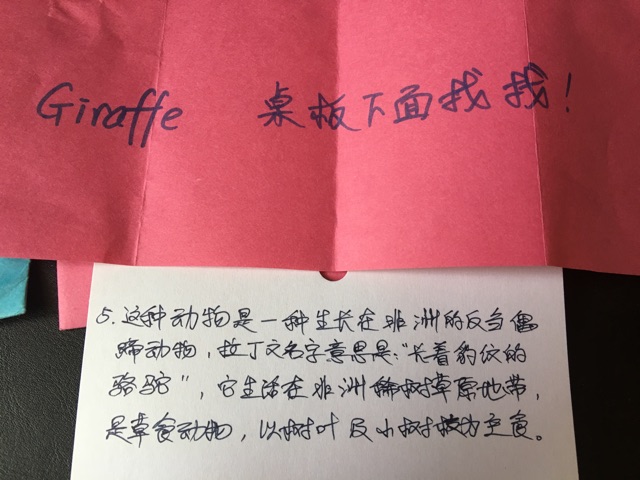 Giraffe 桌板下面找找!
5.这种动物是一种生长在非洲的反刍偶
蹄动物,拉丁文名字意思是:"长着豹纹的
骆驼",它生活在非洲稀树草原地带,
是草食动物,以树叶及小树枝为主食。